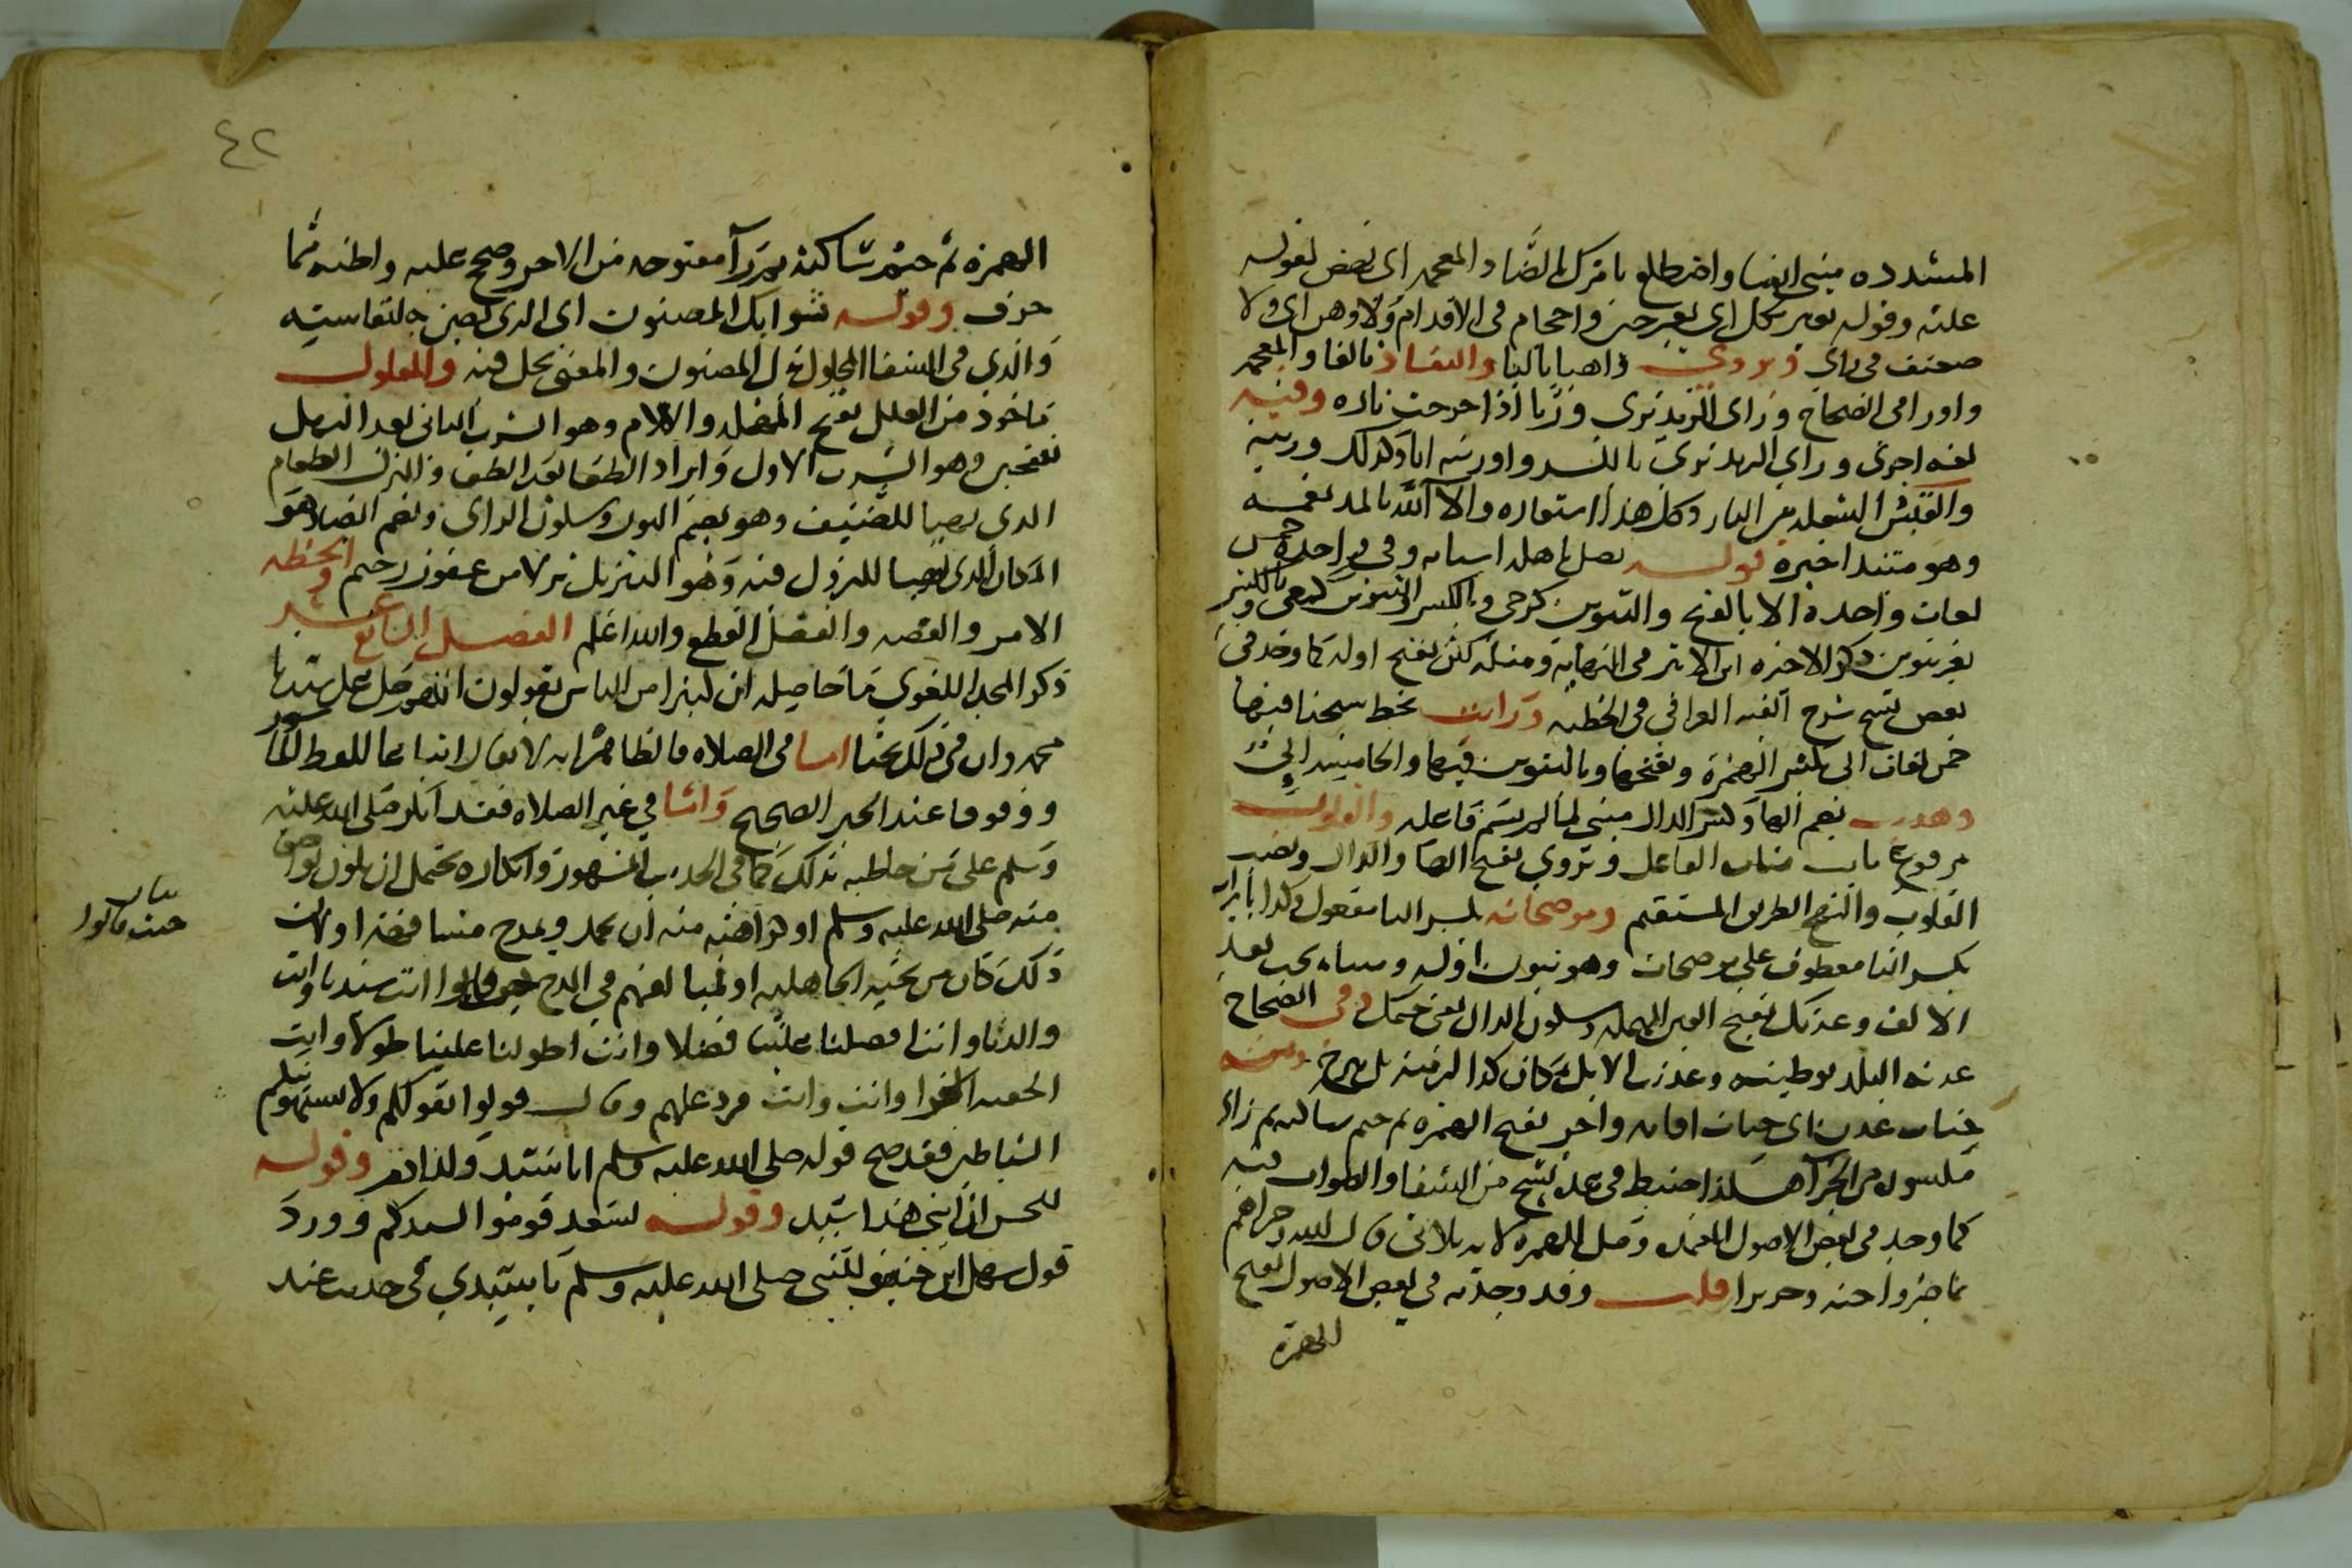 المشدده مبنى الفا واضطلع بامرك بالضاد المعجمه اى نهض لقوله
عليه وقوله بغير نكل اى بغير جبن واحجام فى الاقدام ولا وهن اى ولا
ضعف فى راى ويروى واهيا باليا والنفاذ بالفا والمعجمه
واورى فى الصحاح ورى الزند يرى وريا اذا خرجت ناره وفيه
لغه اخرى ورى الزند يرى بالكسر واوريته انا وكذلك وريته
والقبس الشعله من النار وكل هذا استعاره والا آلله بالمد نعمه
وهو مبتدا خبره قوله تصل باهله اسبابه وفى واحدها خمس
لغات واحده الالا بالفتح والتنوين كرحى وبالكسر والتنوين كمعى وبالكسر
بغير تنوين ذكر الاخيره ابن الاثير فى النهايه ومثله لكن بفتح اوله كما وجد فى
بعض نسخ شرح الفيه العراقى فى الخطبه ورايت بخط شيخنا فيها
خمس لغات الى بكسر الهمزة وفتحها وبالتنوين فيهما والخامسة الي
وهديت بضم الها وكسر الدال مبنى لما لم يسم فاعله والقلوب
مرفوع نايب مناب الفاعل ويروى بفتح الها والدال ونصب
القلوب والنهج الطريق المستقيم وموضحات بكسر التا مفعول وكذا نايرات
بكسر التا معطوف على موضحات وهو بنون اوله ومثناه تحت بعد
الالف وعدنك بفتح العين المهمله وسكون الدال يعنى جنتك وفى الصحاح
عدنت البلد توطنته وعدنت الابل بمكان كذا لزمته فلم تبرح ومنه
جنات عدن اى جنات اقامه واجز بفتح الهمزه ثم جيم ساكنه ثم زاى
مكسوره من الجزآ هكذا ضبط فى عدة نسخ من الشفا والصواب فيه
كما وجد فى بعض الاصول المعتمده وصل الهمزه لانه ثلاثى قال الله وجزاهم
بما صبروا جنه وحريرا قلت وقد وجدته فى بعض الاصول بفتح
الهمزة
٤٢
الهمزه ثم جيم ساكنه ثم رآ مفتوحه من الاجر وصح عليه واظنه مما
حرف وقوله ثوابك المضنون اى الذى يضن به لنفاسته
والذى فى الشفا المحلول بدل المضنون والمعنى يحل فيه والمعلول
ماخوذ من العلل بفتح المهمله واللام وهو الشرب الثانى بعد النهل
بفتحتين وهو الشرب الاول وايراد اللطف بعد اللطف والنزل الطعام
الذى يهيا للضيف وهو بضم النون وسكون الزاى وبضم الضاد هو
المكان الذى يهيا للنزول فيه وهو التنزيل نزلا من غفور رحيم والخطه
الامر والقصه والفصل القطع والله اعلم الفصل السابع عشر
ذكر المجد اللغوى ما حاصله ان كثيرا من الناس يقولون اللهم صل على سيدنا
محمد وان فى ذلك بحثا اما فى الصلاه فالظاهر انه لا يقال اتباعا للفظ الماثور
ووقوفا عند الخبر الصحيح واما فى غير الصلاه فقد انكر صلى الله عليه
وسلم على من خاطبه بذلك كما فى الحديث المشهور وانكاره يحتمل ان يكون تواضعا
منه صلى الله عليه وسلم او كراهيه منه ان يحمد ويمدح مشافهه او لان
ذلك كان من تحيه الجاهليه او لمبالغتهم فى المدح حيث قالوا انت سيدنا وانت
والدنا وانت افضلنا علينا فضلا وانت اطولنا علينا طولا وانت
الجفنه الغرا وانت وانت فرد عليهم وقال قولوا بقولكم ولا يستهوينكم
الشياطين فقد صح قوله صلى الله عليه وسلم انا سيد ولد ادم وقوله
للحسن ان ابنى هذا سيد وقوله لسعد قوموا الى سيدكم وورد
قول سهل ابن حنيف للنبى صلى الله عليه وسلم يا سيدي فى حديث عند
بيان
حيث قالوا